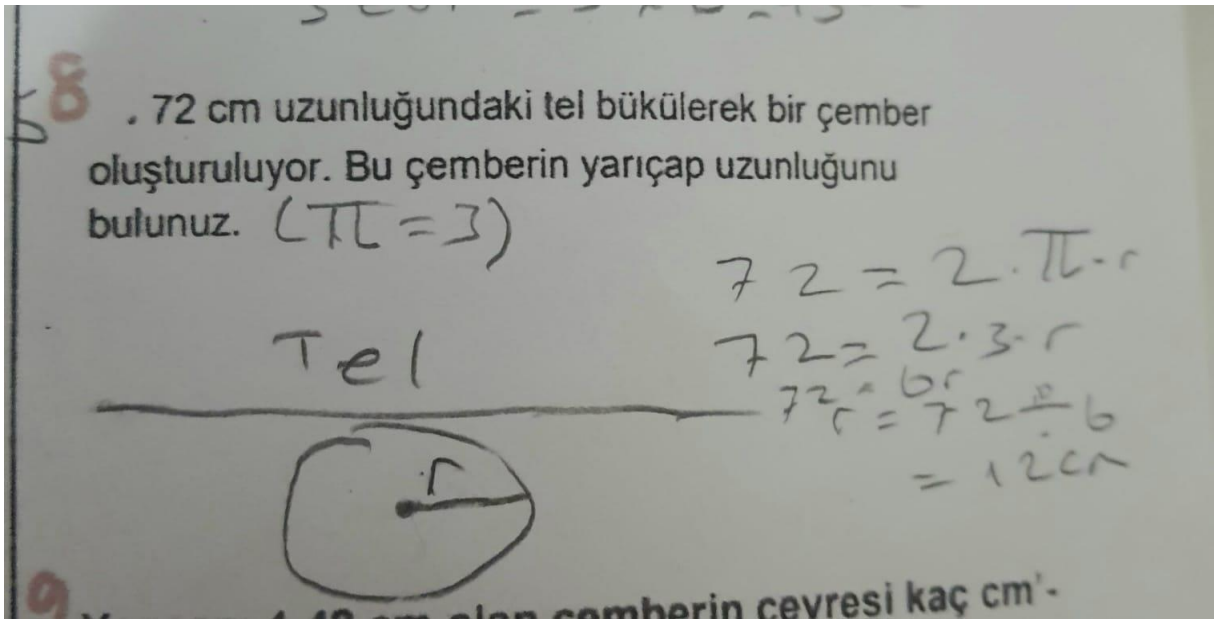 8
. 72 cm uzunluğundaki tel bükülerek bir çember
oluşturuluyor. Bu çemberin yarıçap uzunluğunu
bulunuz. (π=3)
72 = 2.π.r
72= 2.3.r
72 = 6r
r = 72 ÷ 6
= 12cm
Tel
r
9
olan çemberin çevresi kaç cm